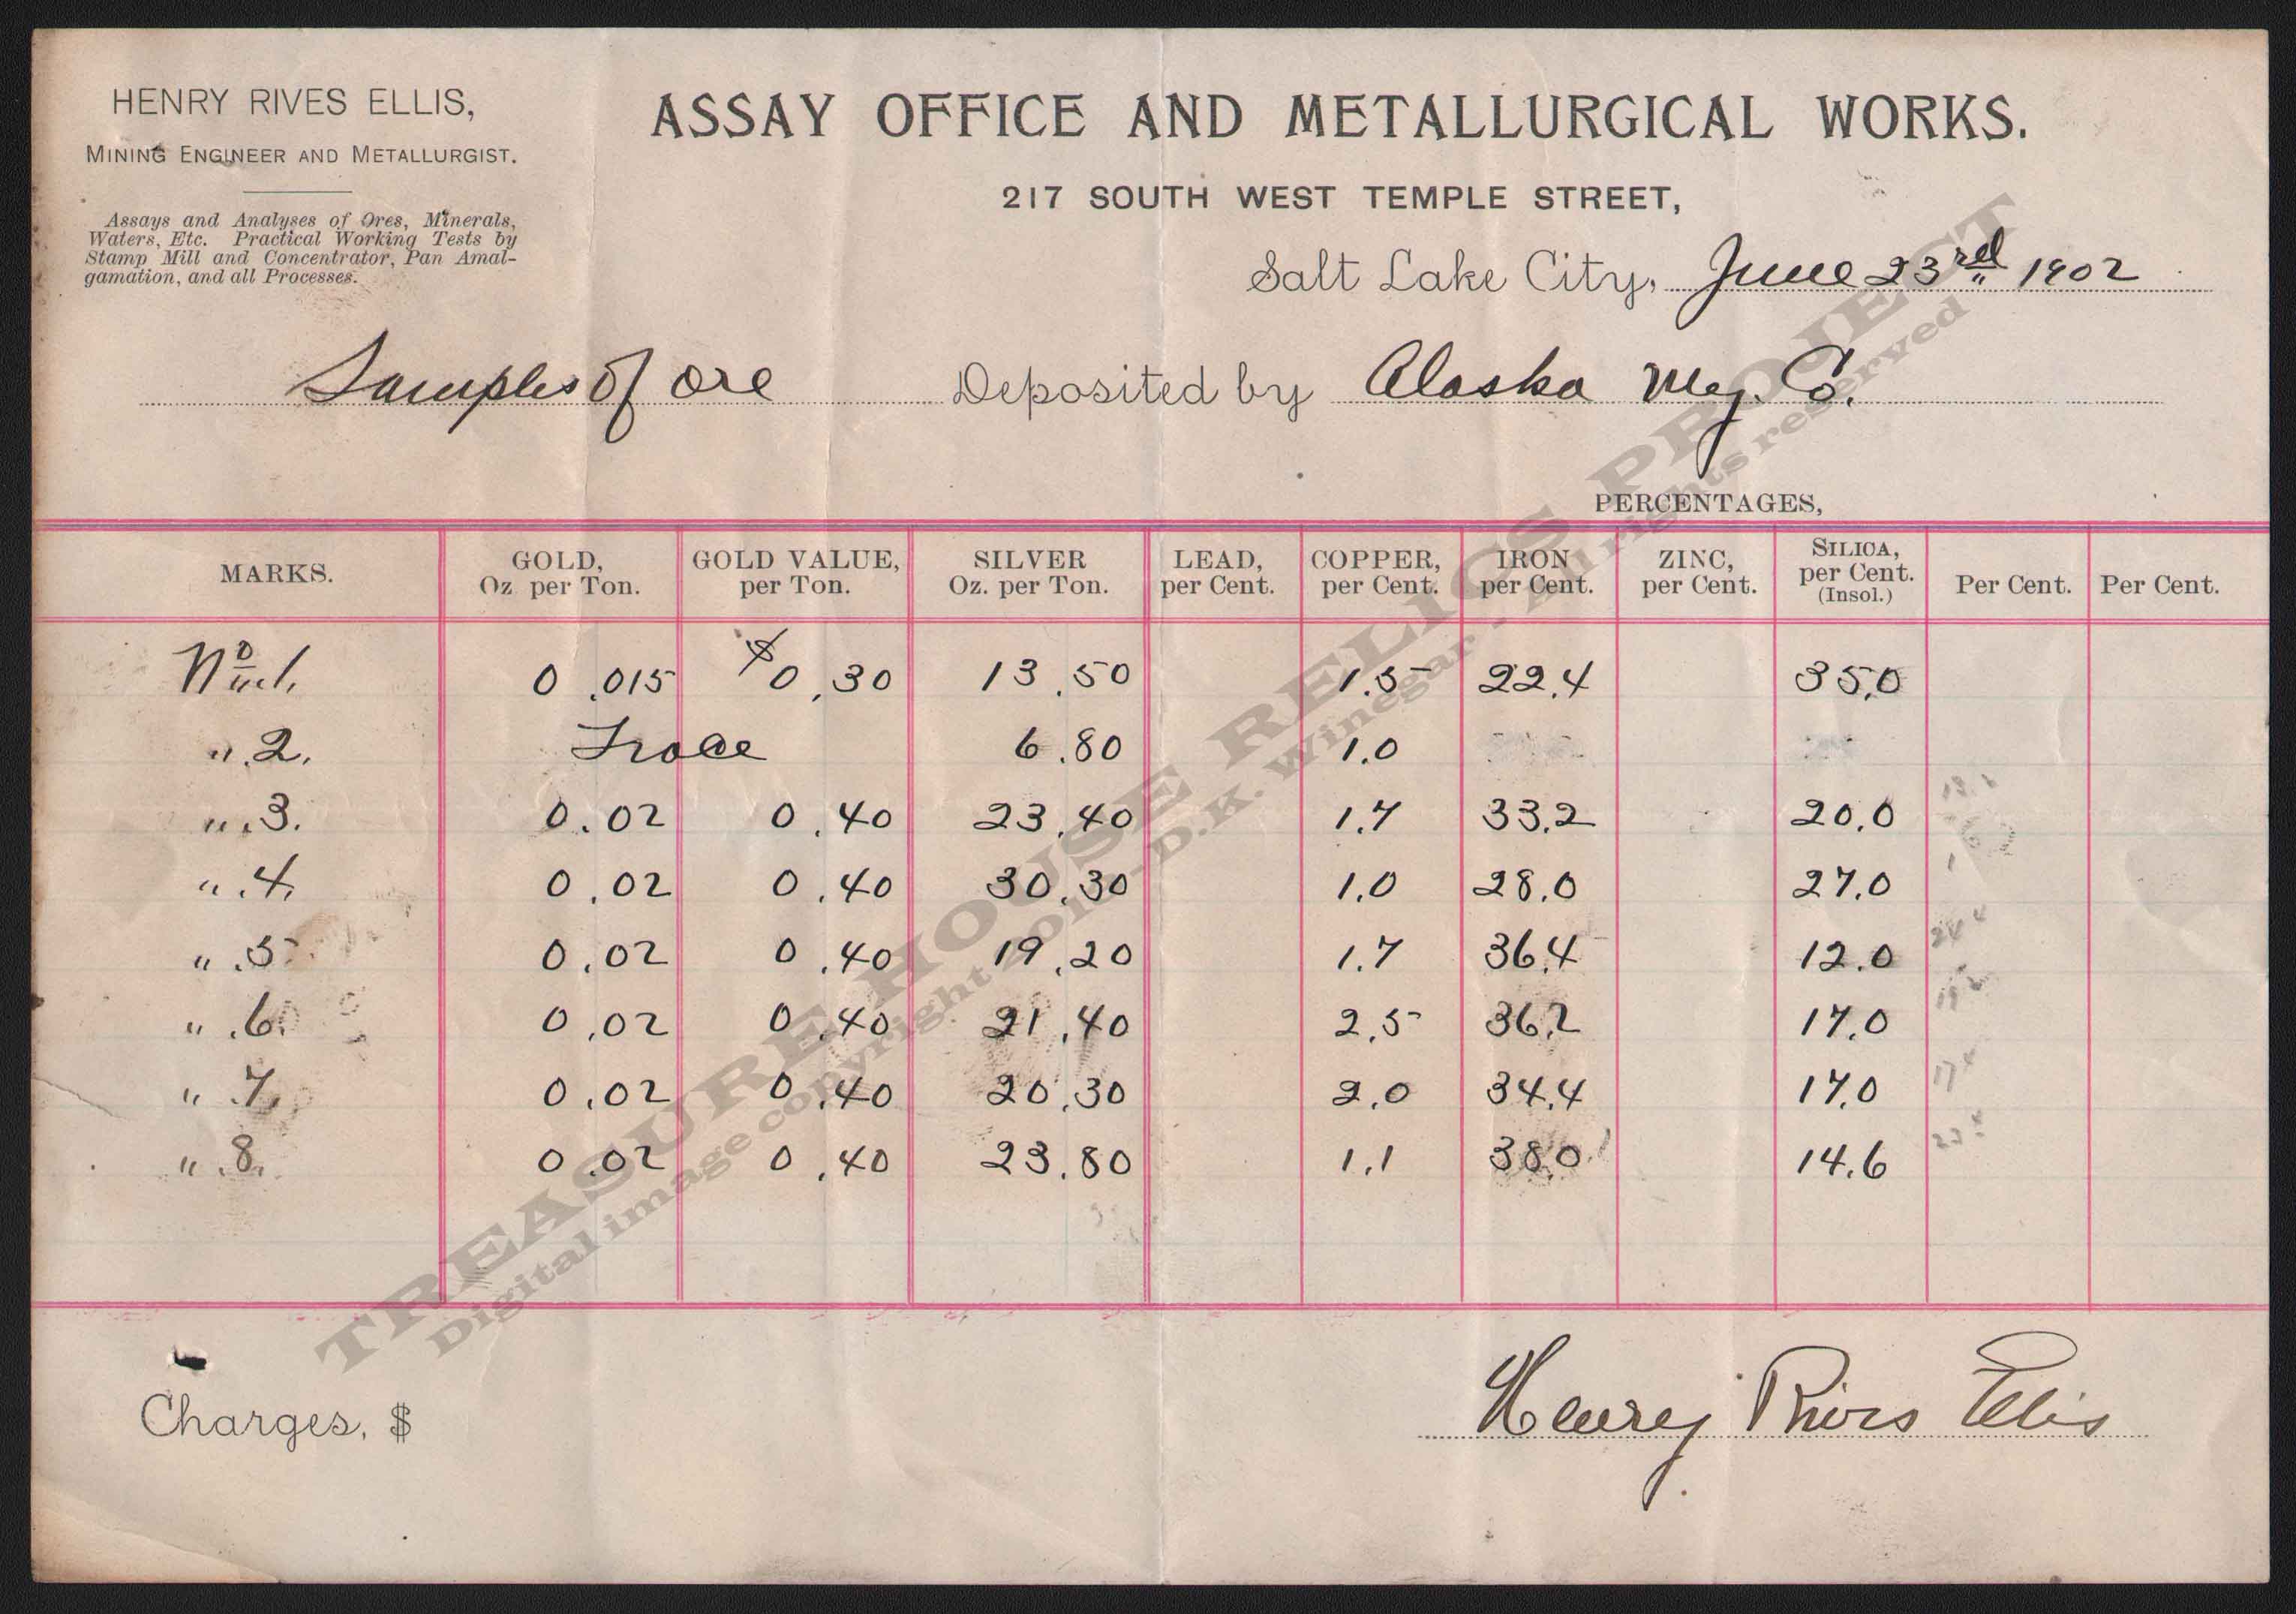 HENRY RIVES ELLIS,
MINING ENGINEER AND METALLURGIST.
Assays and Analyses of Ores, Minerals,
Waters, Etc. Practical Working Tests by
Stamp Mill and Concentrator, Pan Amal-
gamation, and all Processes.
ASSAY OFFICE AND METALLURGICAL WORKS.
217 SOUTH WEST TEMPLE STREET,
Salt Lake City, June 23rd 1902
Samples of ore Deposited by Alaska Mg. Co.
PERCENTAGES,
MARKS. GOLD, Oz. per Ton. GOLD VALUE, per Ton. SILVER Oz. per Ton. LEAD, per Cent. COPPER, per Cent. IRON per Cent. ZINC, per Cent. SILICA, per Cent. (Insol.) Per Cent. Per Cent.
No 1. 0.015 $0.30 13.50 1.5 22.4 35.0
" 2. Trace 6.80 1.0
" 3. 0.02 0.40 23.40 1.7 33.2 20.0
" 4. 0.02 0.40 30.30 1.0 28.0 27.0
" 5. 0.02 0.40 19.20 1.7 36.4 12.0
" 6. 0.02 0.40 21.40 2.5 36.2 17.0
" 7. 0.02 0.40 20.30 2.0 34.4 17.0
" 8. 0.02 0.40 23.80 1.1 38.0 14.6
Charges, $
Henry Rives Ellis
TREASURE HOUSE RELICS PROJECT
Digital image copyright - D.K. Winegar - All rights reserved